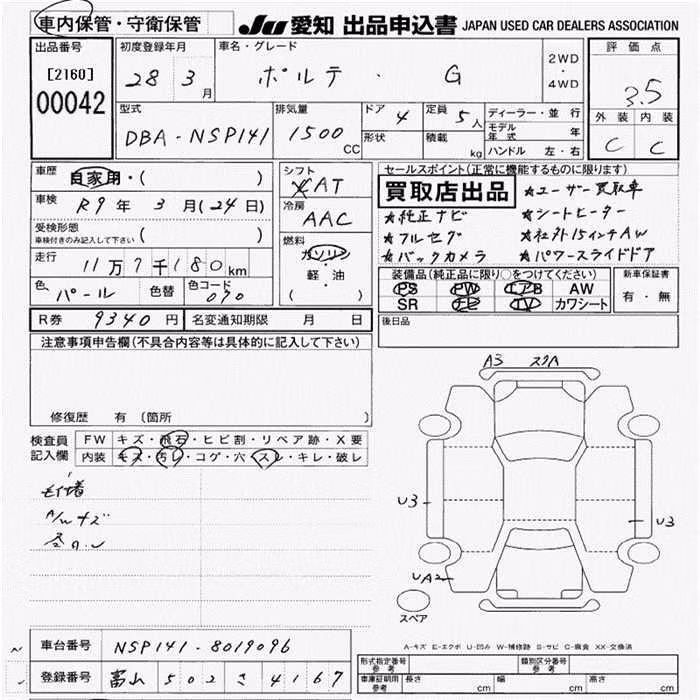 車内保管・守衛保管 JU 愛知 出品申込書 JAPAN USED CAR DEALERS ASSOCIATION
出品番号 初度登録年月 車名・グレード 2WD ・ 4WD 評価点
[2160] 28 3月 ポルテ ・ G 3.5
00042
型式 排気量 ドア 4 定員 5人 ディーラー・並行 外装 内装
DBA-NSP141 1500CC 形状 積載 kg モデル年式 年 C C
ハンドル 左・右
車歴 自家用・( ) シフト AT セールスポイント(正常に機能するものに限ります)
車検 R9年 3月(24日) 冷房 AAC 買取店出品 ★ユーザー買取車
受検形態 ( ) ★純正ナビ ★シートヒーター
車検付きのみ記入して下さい 燃料 ガソリン ★フルセグ ★社外15インチAW
走行 11万7千180km ・軽・油 ★バックカメラ ★パワースライドドア
色 パール 色替 色コード 070 ( ) 装備品(純正品に限り○をつけてください) 新車保証書
PS PW エアB AW 有・無
SR ナビ TV カワシート
R券 9340円 名変通知期限 月 日 後日品
注意事項申告欄(不具合内容等は具体的に記入して下さい)
修復歴 有 (箇所
A3 スクハ
検査員 FW キズ・飛石・ヒビ割・リペア跡・X要
記入欄 内装 キズ・汚レ・コゲ・穴・スレ・キレ・破レ
A/Wキズ
U3 U3
UA2
スペア
A-キズ E-エクボ U-凹み W-補修跡 S-サビ C-腐食 XX-交換済
車台番号 NSP141-8019096
登録番号 富山 502 さ 4167
形式指定番号 参考 類別区分番号 参考
車庫証明用 参考 長さ cm 幅 cm 高さ cm